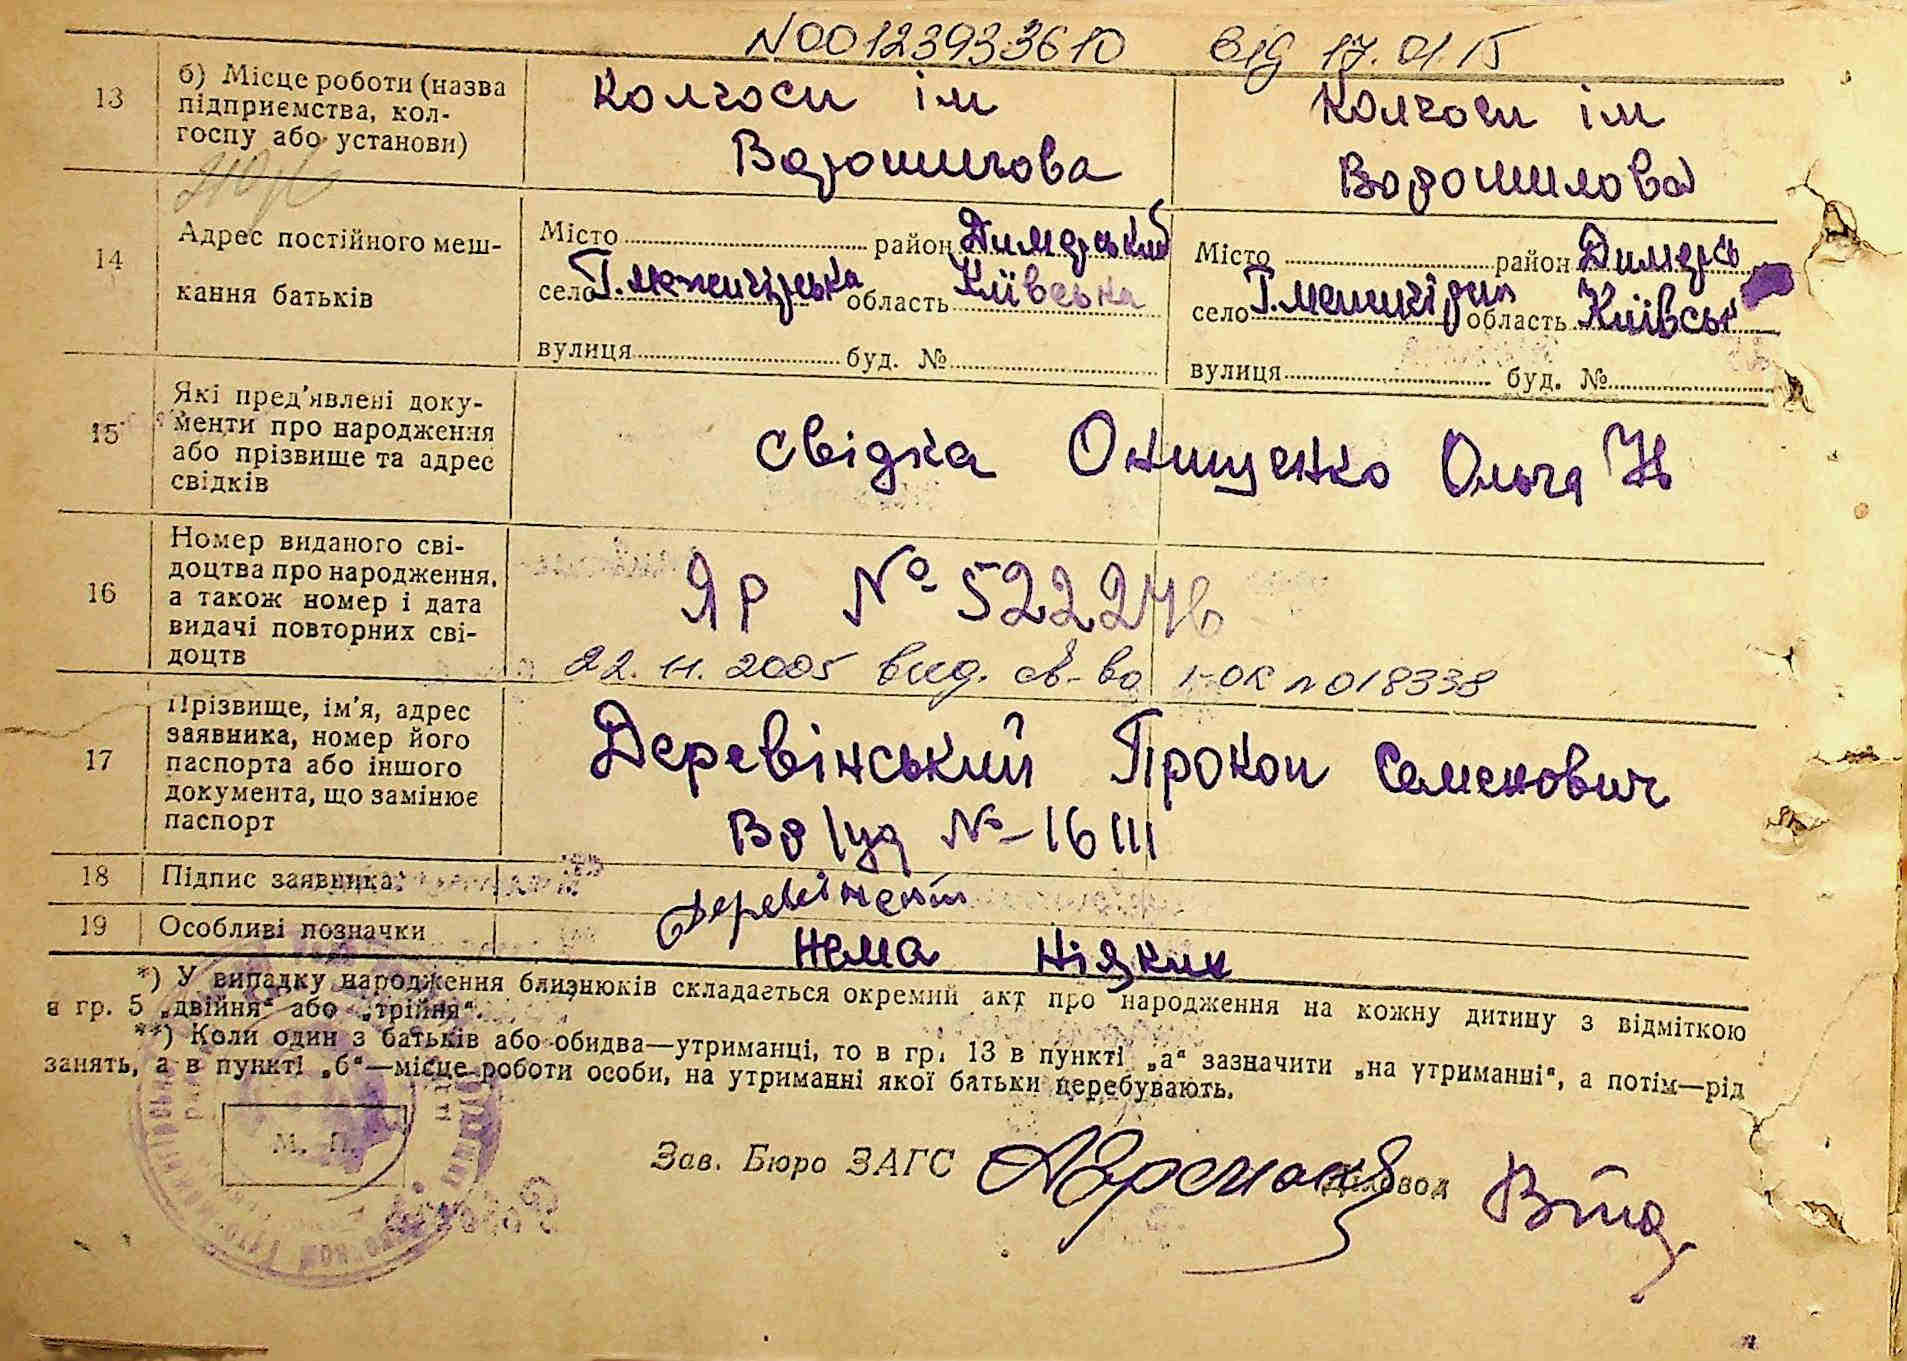 N00123933610 від 17.01.15
13 б) Місце роботи (назва підприємства, кол-
госпу або установи)
Колгосп ім
Ворошилова
Колгосп ім
Ворошилова
14 Адрес постійного меш-
кання батьків
Місто район Димерський
село область Київська
вулиця буд. №
Місто район Димерсь
село область Київськ
вулиця буд. №
15 Які пред'явлені доку-
менти про народження
або прізвище та адрес
свідків
свідка Онищенко Ольга Н
16 Номер виданого сві-
доцтва про народження,
а також номер і дата
видачі повторних сві-
доцтв
ЯР № 522276
22.11.2005 выд. св-во 1-ОК №018338
17 Прізвище, ім'я, адрес
заявника, номер його
паспорта або іншого
документа, що замінює
паспорт
Деревінський Прокоп Семенович
№-16111
18 Підпис заявника
Деревінський
19 Особливі позначки
Нема ніяких
*) У випадку народження близнюків складається окремий акт про народження на кожну дитину з відміткою
в гр. 5 „двійня“ або „трійня“.
**) Коли один з батьків або обидва—утриманці, то в гр. 13 в пункті „а“ зазначити „на утриманні“, а потім—рід
занять, а в пункті „б“—місце роботи особи, на утриманні якої батьки перебувають.
М. П.
Зав. Бюро ЗАГС Діловод